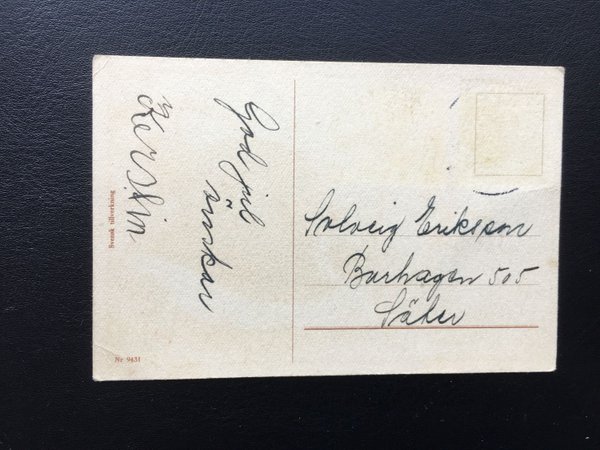 God jul
önskar
Kerstin
Solveig Eriksson
Barhagen 505
Säter
Svensk tillverkning
Nr 9431